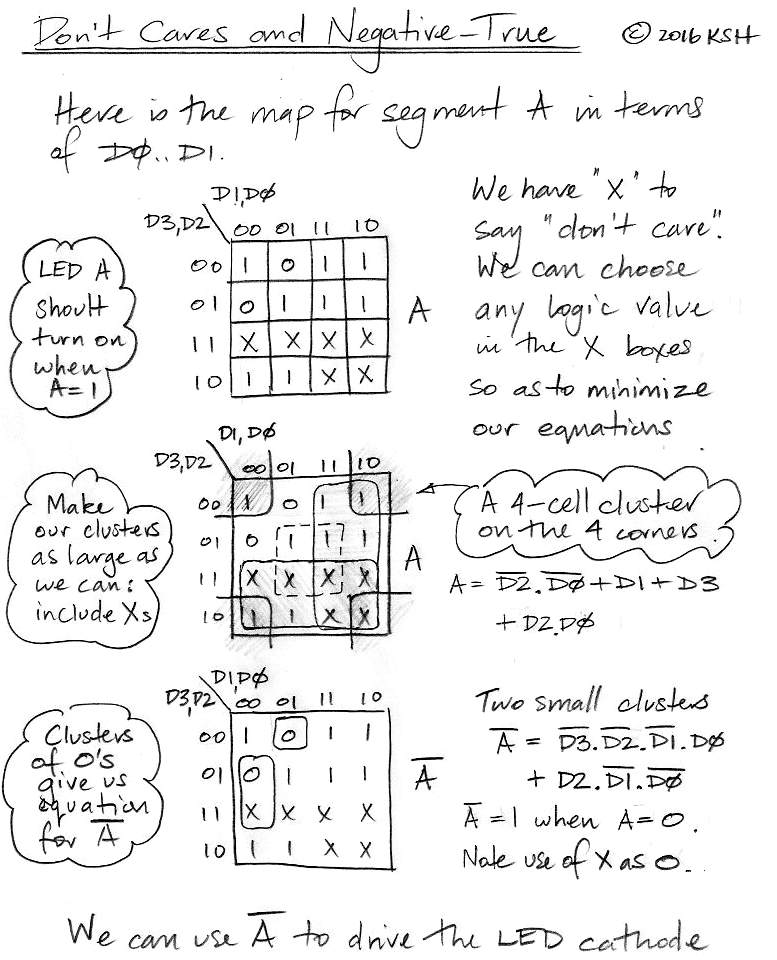 Don't Cares and Negative-True
© 2016 KSH
Here is the map for segment A in terms
of DØ..D1.
D1,DØ
D3,D2 00 01 11 10
00 1 0 1 1
01 0 1 1 1
11 X X X X
10 1 1 X X
A
LED A
should
turn on
when
A=1
We have "X" to
say "don't care".
We can choose
any logic value
in the X boxes
so as to minimize
our equations
D1,DØ
D3,D2 00 01 11 10
00 1 0 1 1
01 0 1 1 1
11 X X X X
10 1 1 X X
A
Make
our clusters
as large as
we can:
include Xs
A 4-cell cluster
on the 4 corners.
A = D̅2̅.D̅Ø̅ + D1 + D3
+ D2.DØ
D1,DØ
D3,D2 00 01 11 10
00 1 0 1 1
01 0 1 1 1
11 X X X X
10 1 1 X X
A̅
Clusters
of 0's
give us
equation
for A̅
Two small clusters
A̅ = D̅3̅.D̅2̅.D̅1̅.DØ
+ D2.D̅1̅.D̅Ø̅
A̅ = 1 when A = 0.
Note use of X as 0.
We can use A̅ to drive the LED cathode